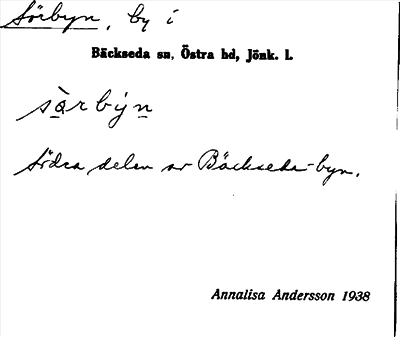 Sörbyn, by i
Bäckseda sn, Östra hd, Jönk. l.
sàrbýn
Södra delen av Bäckseda-byn.
Annalisa Andersson 1938